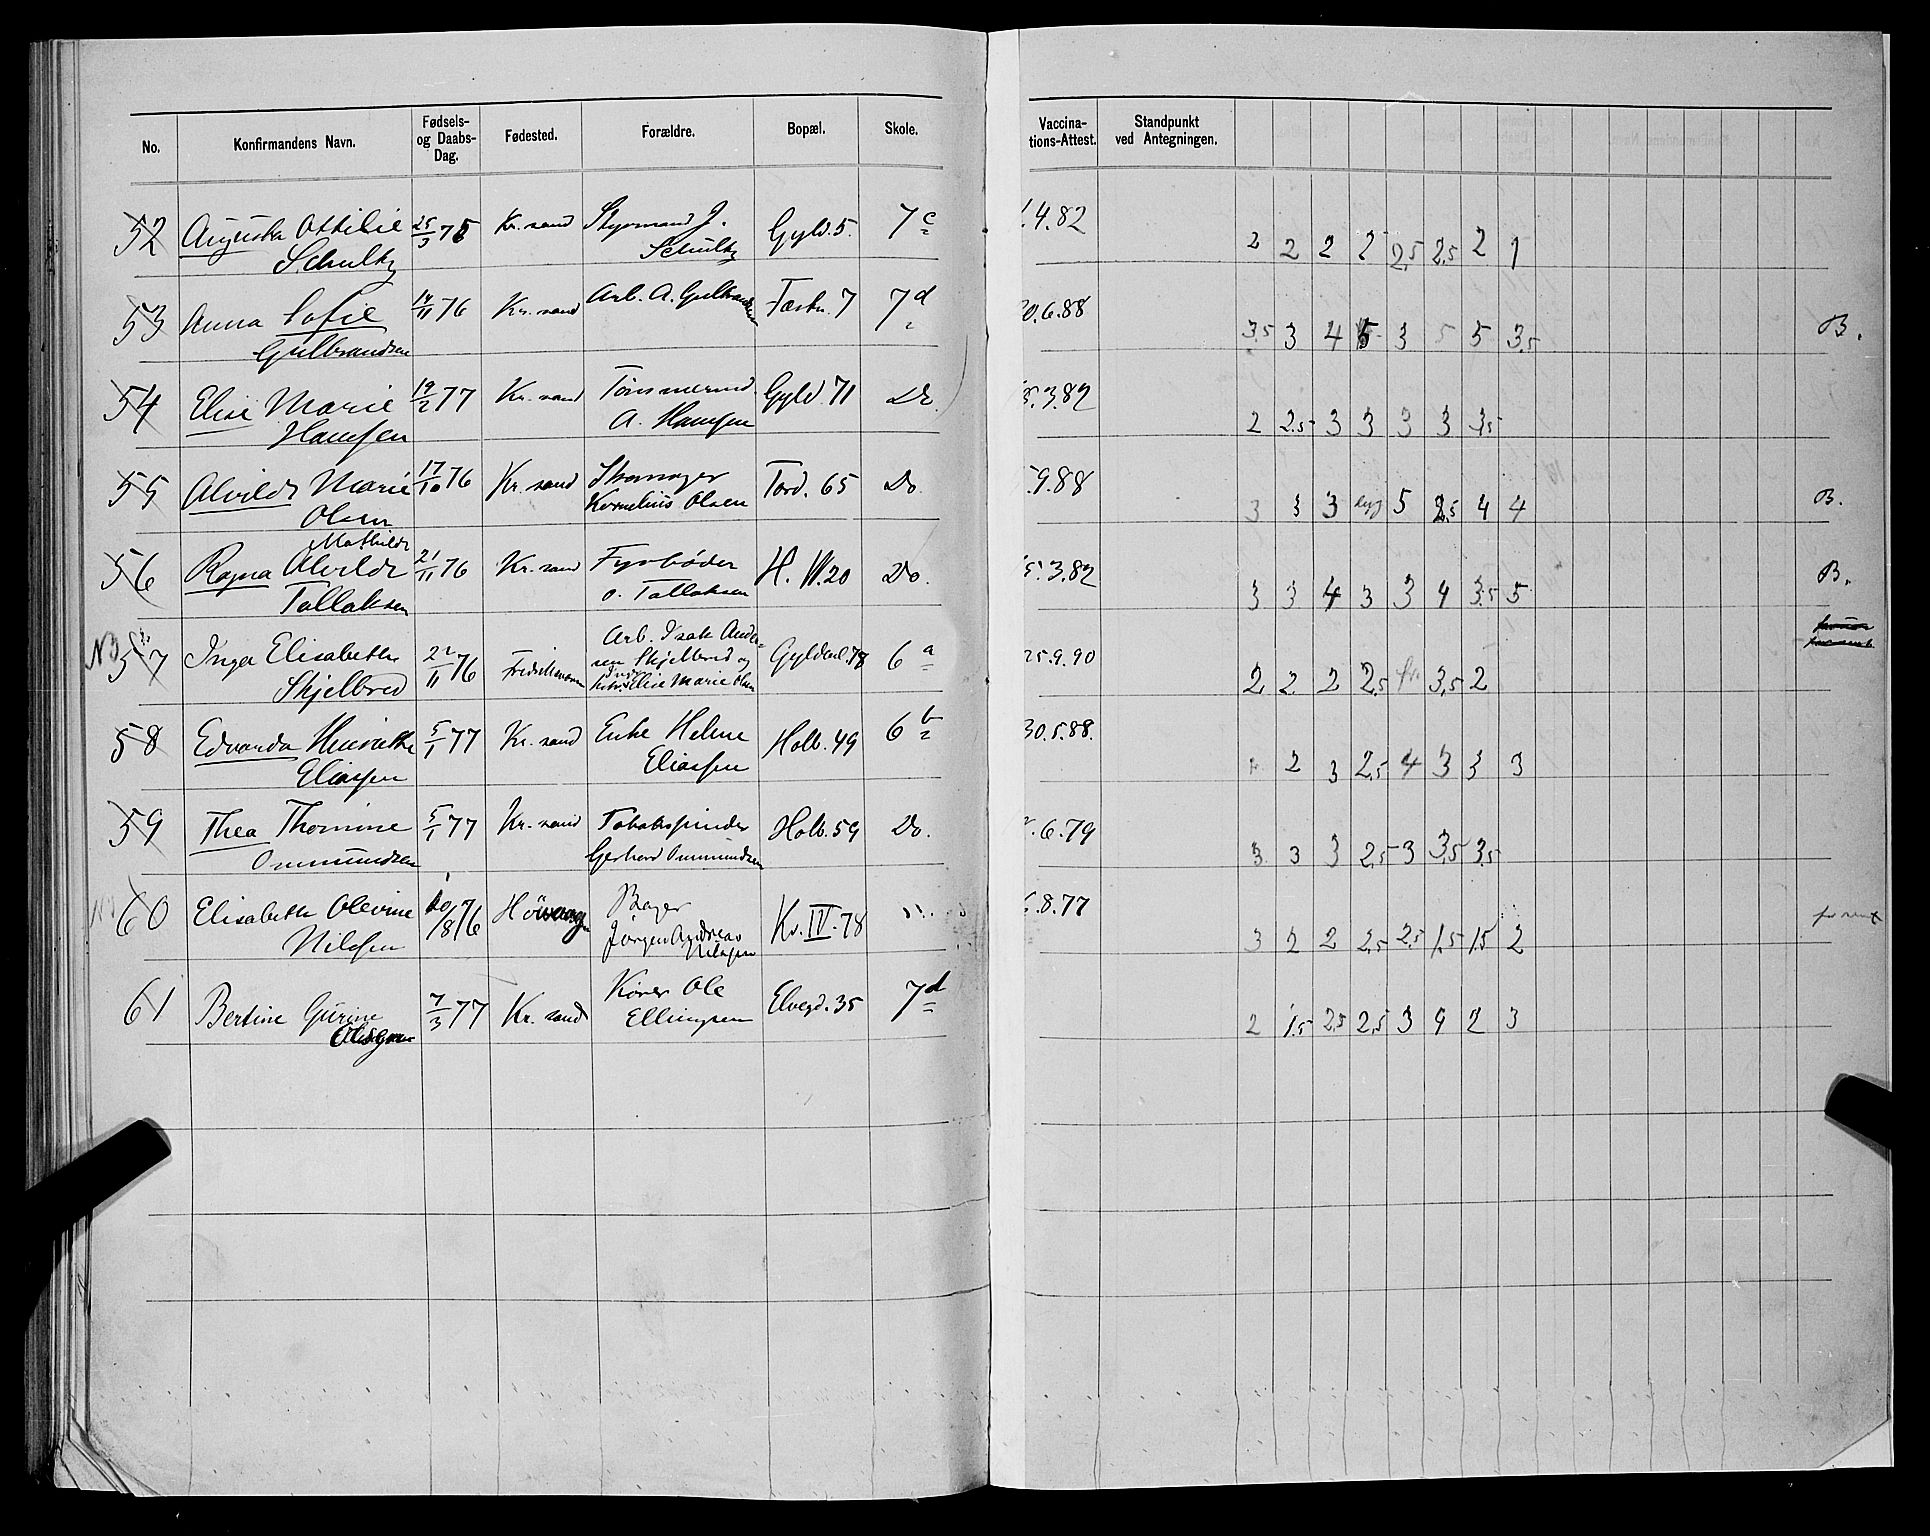 No. Konfirmandens Navn. Fødsels- og Daabs- Dag. Fødested. Forældre. Bopæl. Skole. Vaccina- tions-Attest. Standpunkt ved Antegningen.
52 Augusta Ottilie 25/3 75 Kr. sand Styrmand J. Gyld. 5. 7c .4.82 2 2 2 2 2,5 2,5 2 1
Schultz Schultz
53 Anna Sofie 14/11 76 Kr. sand Arb. A. Gulbrandsen Tastr. 7 7d 20.6.88 3,5 3 4 5 3 5 5 3,5 B.
Gulbrandsen
54 Elise Marie 19/2 77 Kr. sand Tømmermd. Gyld. 71 Do. .3.82 2 2.5 3 3 3 3 3,5
Hansen A. Hansen
55 Alvilde Marie 17/10 76 Kr. sand Skomager Tord. 65 Do .9.88 3 3 3 syg 5 2,5 4 4 B.
Olsen Kornelius Olsen
Mathilde
56 Ragna Alvilde 21/11 76 Kr. sand Fyrbøder H. VI. 20 Do. 5.3.82 3 3 4 3 3 4 3.5 5 B.
Tallaksen O. Tallaksen
57 Inga Elisabeth 22/11 76 Arb. Isak Ander- Gyldenl. 78 6a 25.9.90 2 2 2 2,5 3,5 2
Skjelbred sen Skjelbred og
Elise Marie Olsen
58 Edvarda Henriette 5/1 77 Kr. sand Enke Helene Holb. 49 6b 30.5.88. 2 3 2,5 4 3 3 3
Eliassen Eliassen
59 Thea Thomine 5/1 77 Kr. sand Tobakspinder Holb. 59 Do. .6.79 3 3 3 2,5 3 3,5 3,5
Ommundsen Gerhard Ommundsen
60 Elisabeth Olevine 10/8 76 Høivaag Bager Kv. IV. 78 .8.77 3 2 2 2,5 2,5 1,5 1,5 2
Nilsen Jørgen Andreas
Nilsen
61 Bertine Gurine 7/3 77 Kr. sand Kører Ole Elvegd. 35 7d 2 1,5 2,5 2,5 3 4 2 3
Ellingsen